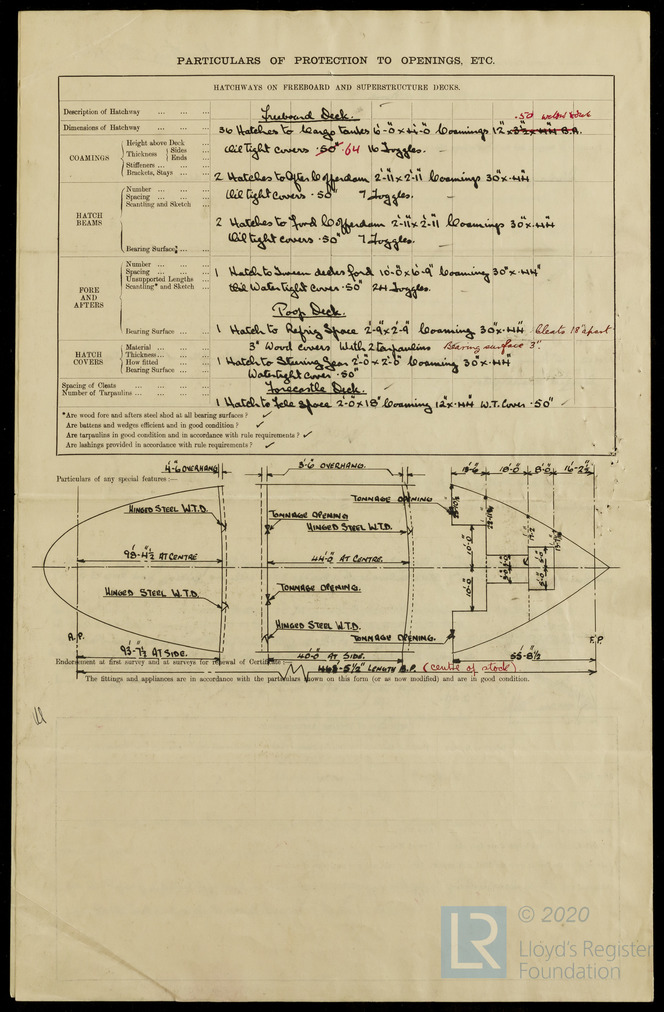 PARTICULARS OF PROTECTION TO OPENINGS, ETC.
HATCHWAYS ON FREEBOARD AND SUPERSTRUCTURE DECKS.
Description of Hatchway ... ... ...
Freeboard Deck.
.50
Dimensions of Hatchway ... ... ...
36 Hatches to Cargo tanks 6'-0" x 4'-0" Coamings 12" x 3½" x .44 B.A.
COAMINGS
Height above Deck ...
Thickness Sides ...
Ends ...
Stiffeners ... ... ...
Brackets, Stays ... ...
Oil tight covers .50" .64 16 Toggles.
2 Hatches to After Cofferdam 2'-11" x 2'-11" Coamings 30" x .44
HATCH BEAMS
Number ... ... ...
Spacing ... ... ...
Scantling and Sketch ...
Bearing Surface ... ...
Oil tight covers .50" 7 Toggles.
2 Hatches to Ford Cofferdam 2'-11" x 2'-11" Coamings 30" x .44
Oil tight covers .50" 7 Toggles.
FORE AND AFTERS
Number ... ... ...
Spacing ... ... ...
Unsupported Lengths ...
Scantling* and Sketch ...
Bearing Surface ... ...
1 Hatch to Tween decks ford 10'-0" x 6'-9" Coaming 30" x .44"
Oil Watertight cover .50" 24 Toggles.
Poop Deck.
1 Hatch to Refrig Space 2'-9" x 2'-9" Coaming 30" x .44 Cleats 18" apart
HATCH COVERS
Material ... ... ...
Thickness ... ... ...
How fitted ... ...
Bearing Surface ... ...
3" Wood covers With 2 tarpaulins Bearing surface 3".
1 Hatch to Steering Gear 2'-0" x 2'-0" Coaming 30" x .44
Watertight cover .50"
Spacing of Cleats ... ... ... ...
Number of Tarpaulins ... ... ...
Forecastle Deck.
1 Hatch to Fcle Space 2'-0" x 18" Coaming 12" x .44 W.T. Cover .50"
*Are wood fore and afters steel shod at all bearing surfaces ? ✓
Are battens and wedges efficient and in good condition ? ✓
Are tarpaulins in good condition and in accordance with rule requirements ? ✓
Are lashings provided in accordance with rule requirements ? ✓
Particulars of any special features :—
4'-6" OVERHANG
3'-6" OVERHANG.
18'-0"
8'-0"
16'-2½"
TONNAGE OPENING
HINGED STEEL W.T.D.
TONNAGE OPENING
HINGED STEEL W.T.D.
98'-4½" AT CENTRE
44'-0" AT CENTRE.
10'-0"
10'-0"
HINGED STEEL W.T.D.
TONNAGE OPENING.
HINGED STEEL W.T.D.
TONNAGE OPENING.
A.P.
F.P.
93'-7½" AT SIDE.
40'-0" AT SIDE.
55'-8½"
Endorsement at first survey and at surveys for renewal of Certificate :—
468'-5½" LENGTH B.P. (centre of stock)
The fittings and appliances are in accordance with the particulars shown on this form (or as now modified) and are in good condition.
LR
© 2020
Lloyd's Register
Foundation